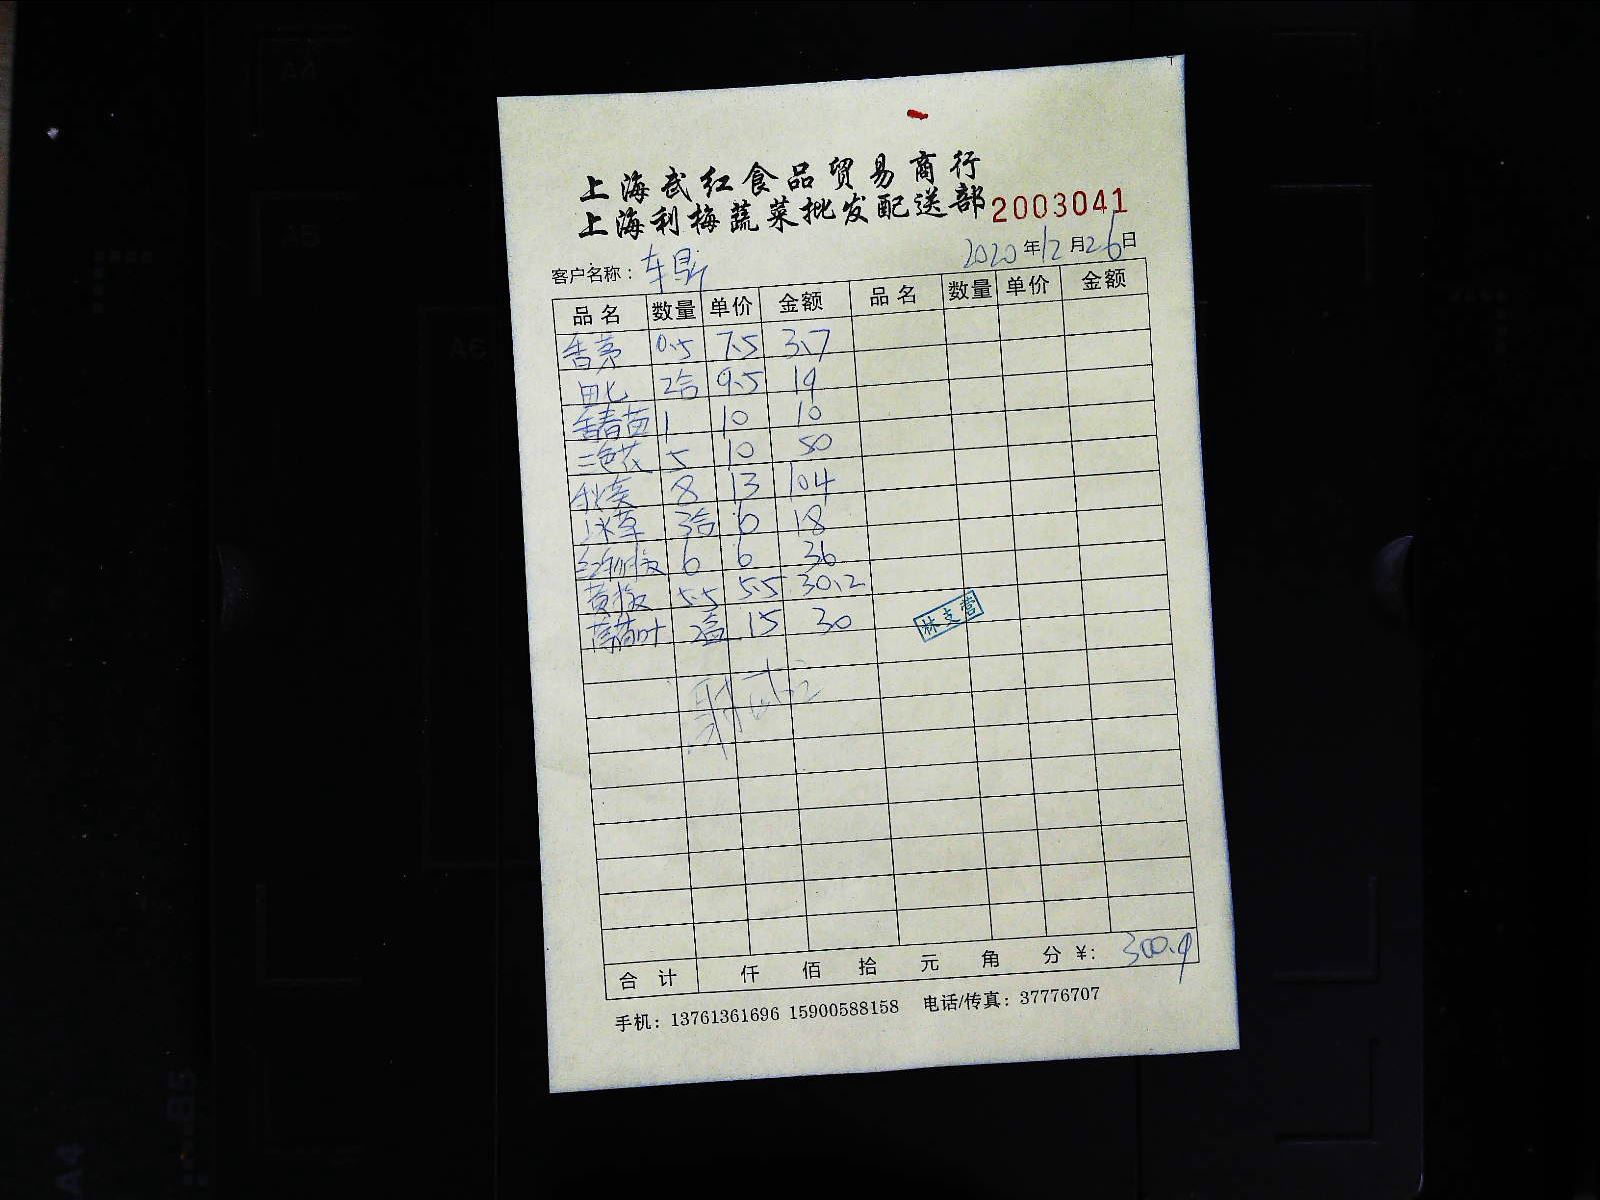 上海武红食品贸易商行
上海利梅蔬菜批发配送部 2003041
客户名称： 东鼎 2020年12月26日
品名 数量 单价 金额 品名 数量 单价 金额
香茅 0.5 7.5 3.7
田七 2合 9.5 19
香春苗 1 10 10
三色花 5 10 50
秋葵 8 13 104
冰草 3合 6 18
6 6 36
黄椒 5.5 5.5 30.2
薄荷叶 2盒 15 30
林支营
合计 仟 佰 拾 元 角 分 ¥： 300.9
手机：13761361696 15900588158 电话/传真：37776707